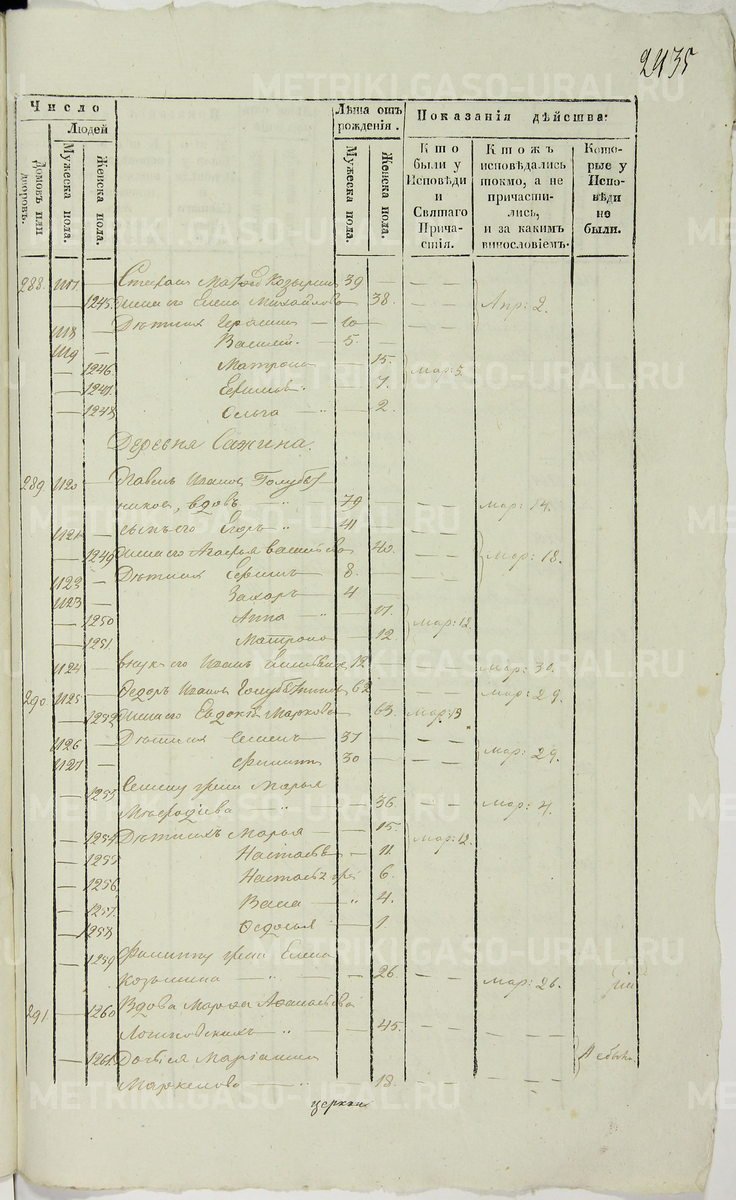 2435
Число
Людей
Домовъ или дворовъ.
Мужеска пола.
Женска пола.
Лѣта отъ рожденія.
Мужеска пола.
Женска пола.
Показанія дѣйства:
Кто были у Исповѣди и Святаго Причастія.
Ктожъ исповѣдались токмо, а не причастились, и за какимъ винословіемъ.
Которые у Исповѣди не были.
288. 1117 — Стефанъ Козыринъ 39 — — —
— 1245. жена его Елена Михайлова — 38. — — Апр: 2.
1118 — Дѣти ихъ Герасимъ — 10 —
1119 — Василий — 5. —
— 1246. Матрона — 15. Мар: 5.
— 1247. — 7.
— 1248. Ольга — 2.
Деревня Сажина.
289 1120 — Павелъ Ивановъ Голуб
никовъ, вдовъ 79 — — — Мар: 14.
1121 — сынъ его Егоръ 41 — — —
— 1249 жена его Агафья Васильева — 40. — — Мар: 18.
1122 — Дѣти ихъ 8. — — —
1123 — Захаръ — 4 —
— 1250 Анна — 17. Мар: 12.
— 1251. Матрона — 12
1124 — внукъ его Иванъ 12 — — — Мар: 30.
290 1125 — Ѳедоръ Ивановъ 62 — — — Мар: 29.
— 1252 жена его Евдокія Маркова — 63. Мар: 13
1126 — Дѣти ихъ Семенъ — 37 — — —
1127 — Филиппъ 30 — — — Мар: 29.
— 1253 Семену жена Марья
— 36. — — Мар: 4.
— 1254 Дѣти ихъ Марья — 15. Мар: 12.
— 1255 Настасья — 11
— 1256 Настасья — 6.
— 1257. Васса — 4.
— 1258 Ѳедосья — 1
— 1259 Филиппу жена Елена
Козьмина — 26. — — Мар: 26.
291 — 1260 Вдова Марѳа Аѳанасьева
— 45. — — —
— 1261. Маріамна
Маркелова — 18. — —
церкви
METRIKI.GASO-URAL.RU